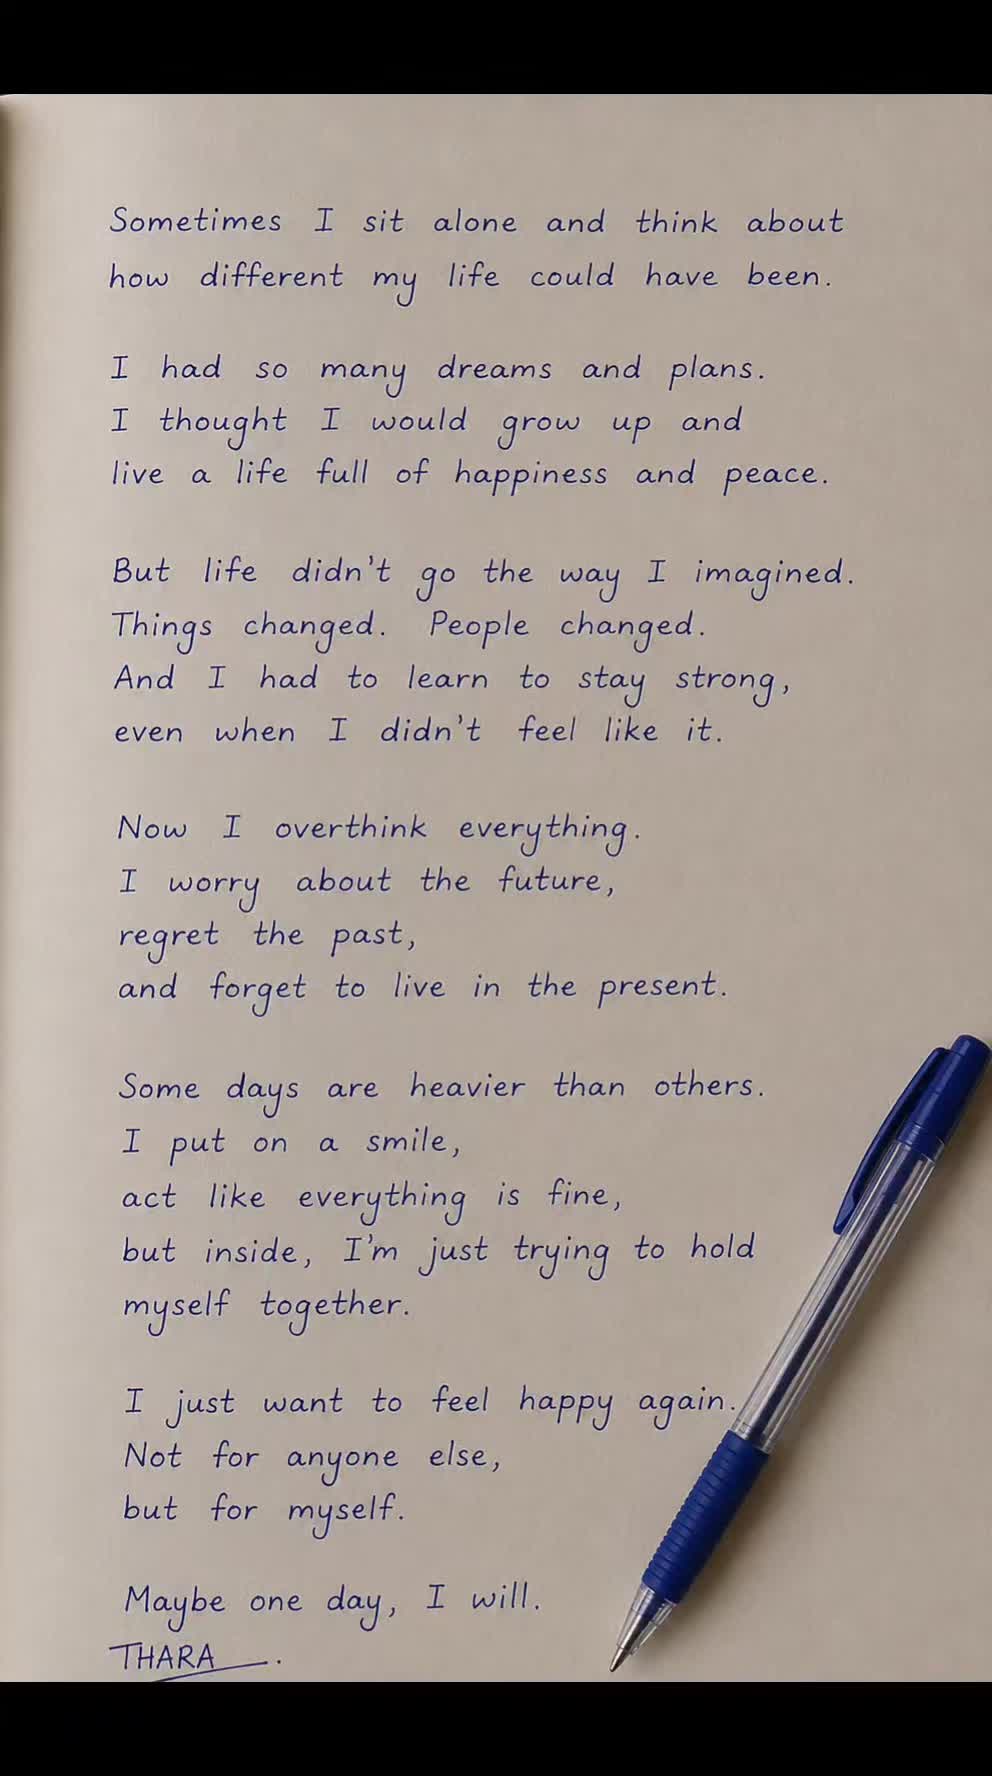 Sometimes I sit alone and think about
how different my life could have been.
I had so many dreams and plans.
I thought I would grow up and
live a life full of happiness and peace.
But life didn't go the way I imagined.
Things changed. People changed.
And I had to learn to stay strong,
even when I didn't feel like it.
Now I overthink everything.
I worry about the future,
regret the past,
and forget to live in the present.
Some days are heavier than others.
I put on a smile,
act like everything is fine,
but inside, I'm just trying to hold
myself together.
I just want to feel happy again.
Not for anyone else,
but for myself.
Maybe one day, I will.
THARA